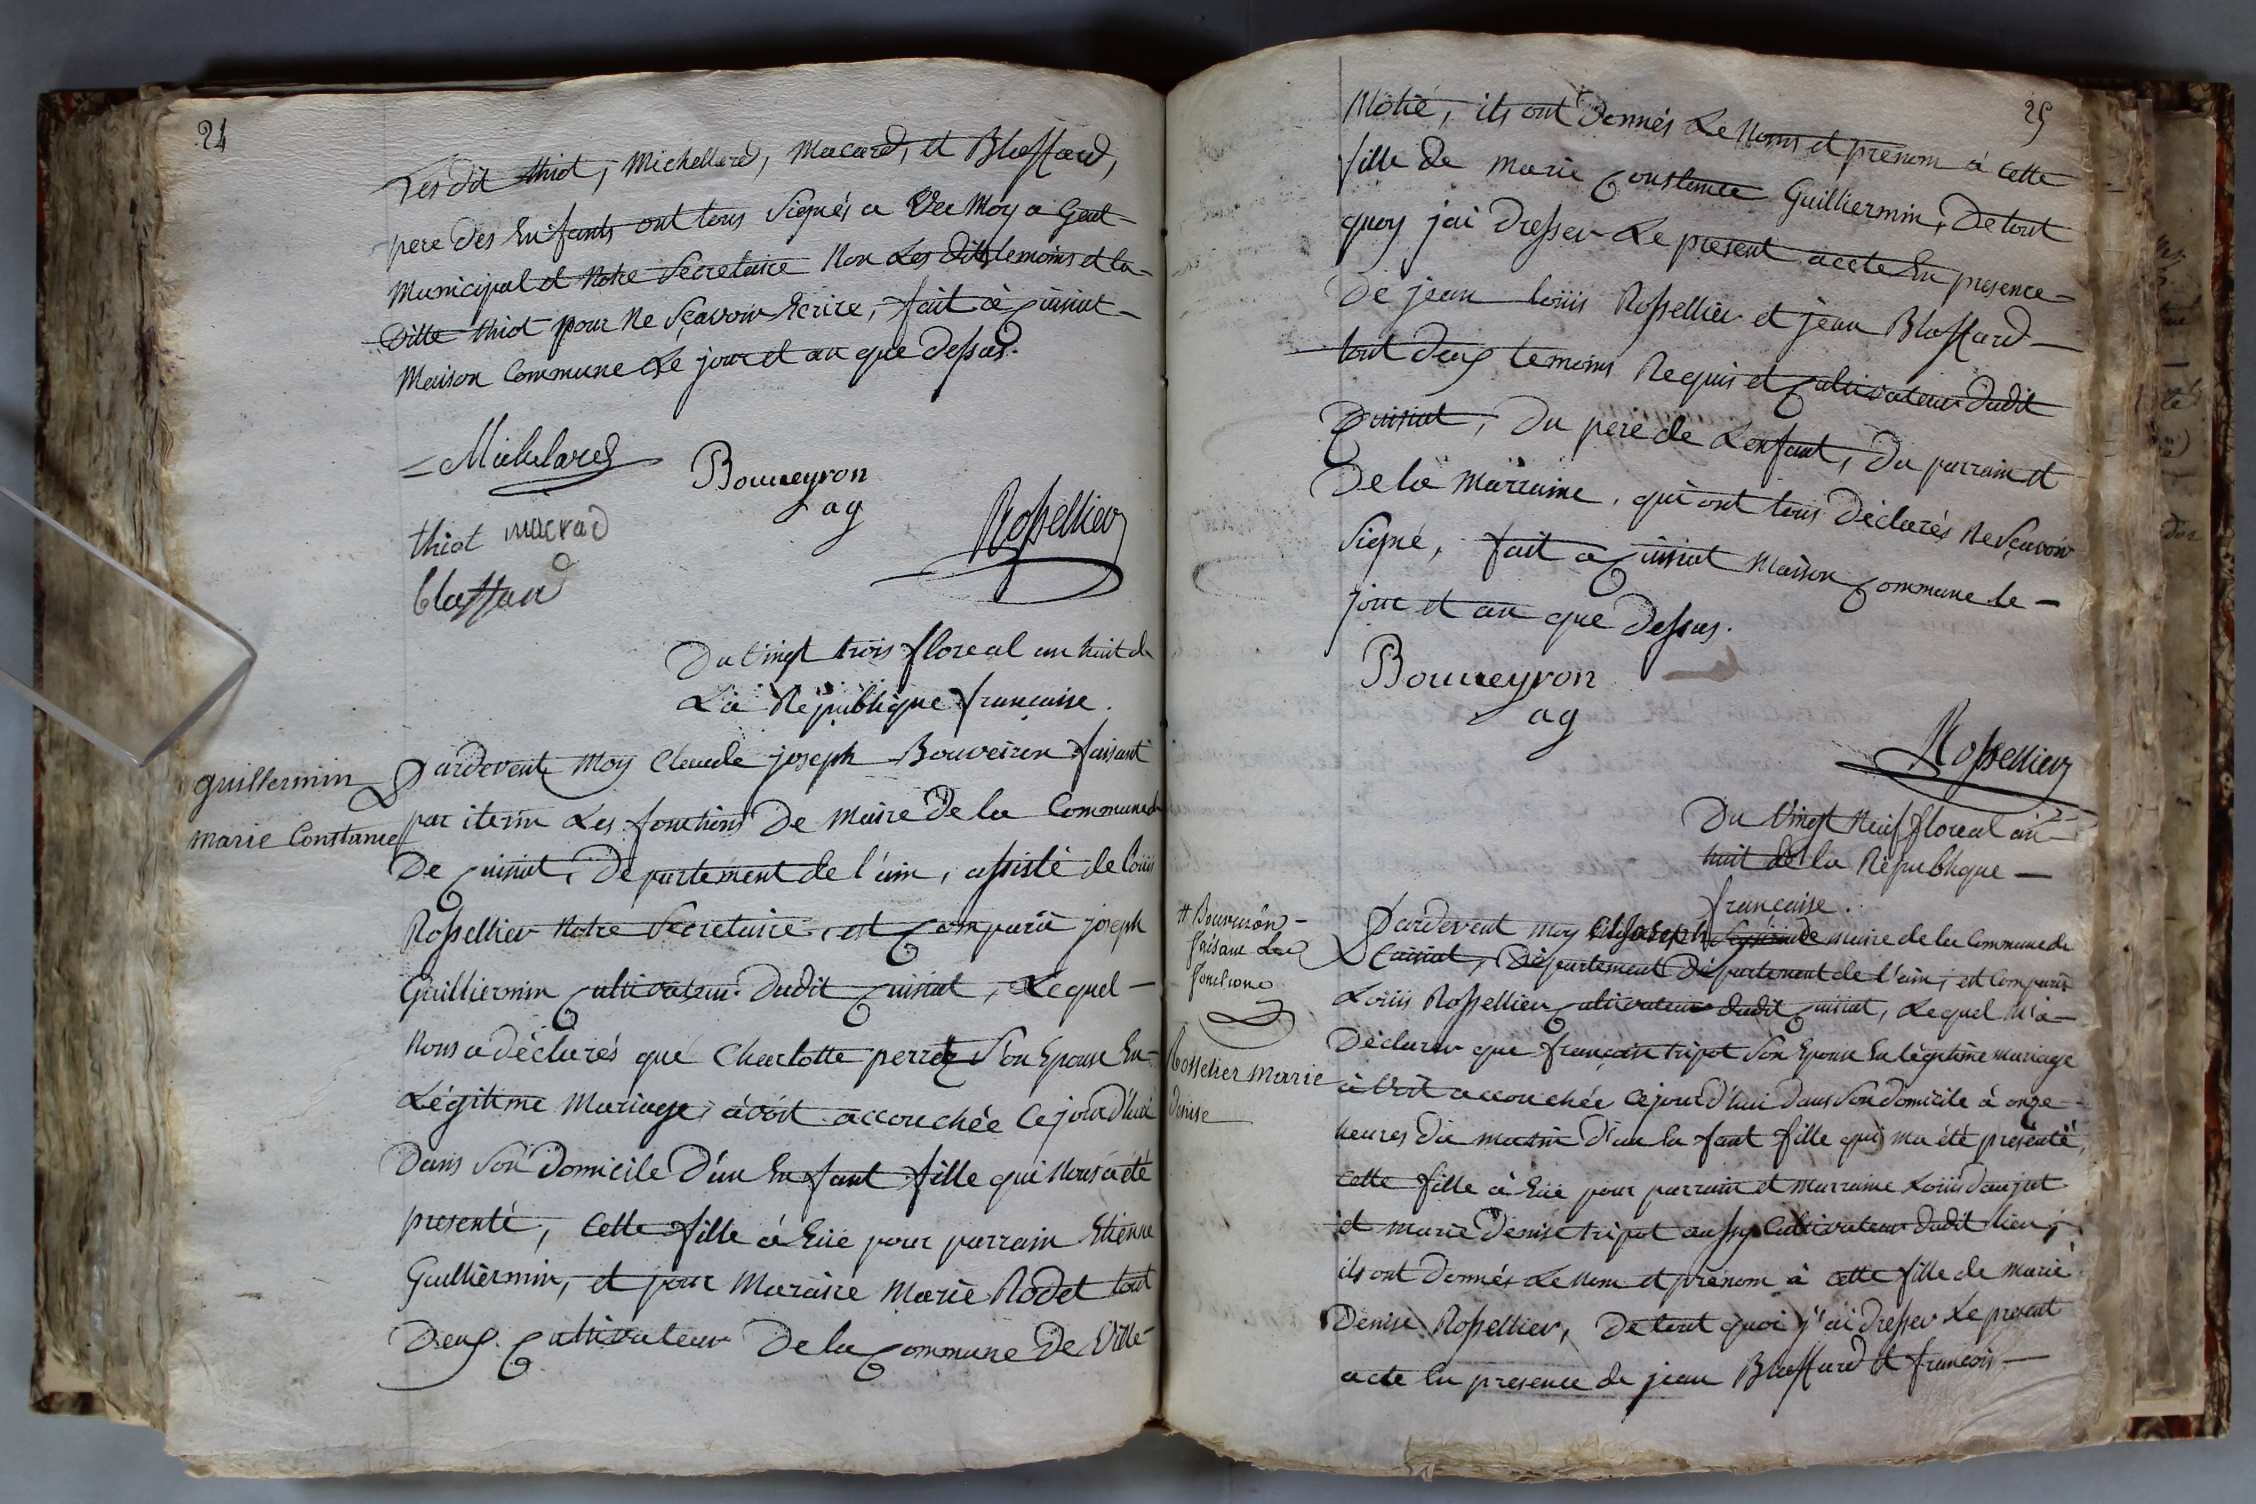 24
Lesdit thiot, Michellard, Macard, et Blassard,
pere des Enfants ont tous signés a vec Moy agent
Municipal et Notre Secretaire Non Les dits temoins et la
ditte thiot pour Ne Sçavoir Ecrire, fait à Cuisiat
Maison Commune Le jour et an que dessus.
Michelard
Bouveyron
ag
thiot macrad
Rossellier
blassard
Du vingt trois floreal an huit de
La Republique francaise.
guillermin
marie Constance
Pardevent Moy Claude joseph Bouveiron faisant
par iterim Les fonctions De Maire De la Commune de
De Cuisiat, Departement de l'ain, assisté de Loüis
Rossellier Notre Secretaire, est Comparü joseph
Guilliermin Cultivateur dudit Cuisiat, Lequel
Nous a déclarés que Charlotte perret Son Epouse En
Légitime Mariage, avoit accouchée Cejourd'hui
Dans Son Domicile D'un Enfant fille qui Nous a été
presenté, Cette fille a Eüe pour parrain Etienne
Guilliermin, et pour Maraine Marie Rodet tout
Deux Cultivateur De la Commune De Ville
25
Motié, ils ont Donnés Le Noms et prenom à Cette
fille de Marie Constance Guilliermin, De tout
quoy jai Dresser Le present accte En presence
De jean Loüis Rossellier et jean Blassard
tout Deux temoins Requis et Cultivateur Dudit
Cuisiat, Du pere de Lenfant, Du parrain et
De la Marraine, qui ont tous Déclarés Ne Sçavoir
Signé, fait a Cuisiat Maison Commune le
jour et an que Dessus.
Bouveyron
ag
Rossellier
Du Vingt Neuf floreal an
huit de la Republique
francaise.
# Bouveiron
faisant Les
fonctions
Rosselier Marie
Denise
Pardevent Moy Cl. Joseph maire de la Commune de
Cuisiat, Département Département de l'ain, est Comparü
Loüis Rossellier Cultivateur dudit Cuisiat, Lequel M'a
Déclarer que françoise tripot Son Epouse En légitime mariage
à Voit accouchée Cejourd'hui Dans Son Domicile à onze
heures du matin D'un En fant fille qui ma été presenté,
Cette fille à Eüe pour parrain et Marraine Loüis daujat
et Marie Denise tripot aussy Cultivateur dudit lieu,
ils ont Donnés Le Nom et prénom à Cette fille de Marie
Denise Rossellier, De tout quoi j'ai Dresser Le present
acte En presence de jean Blassard et francois